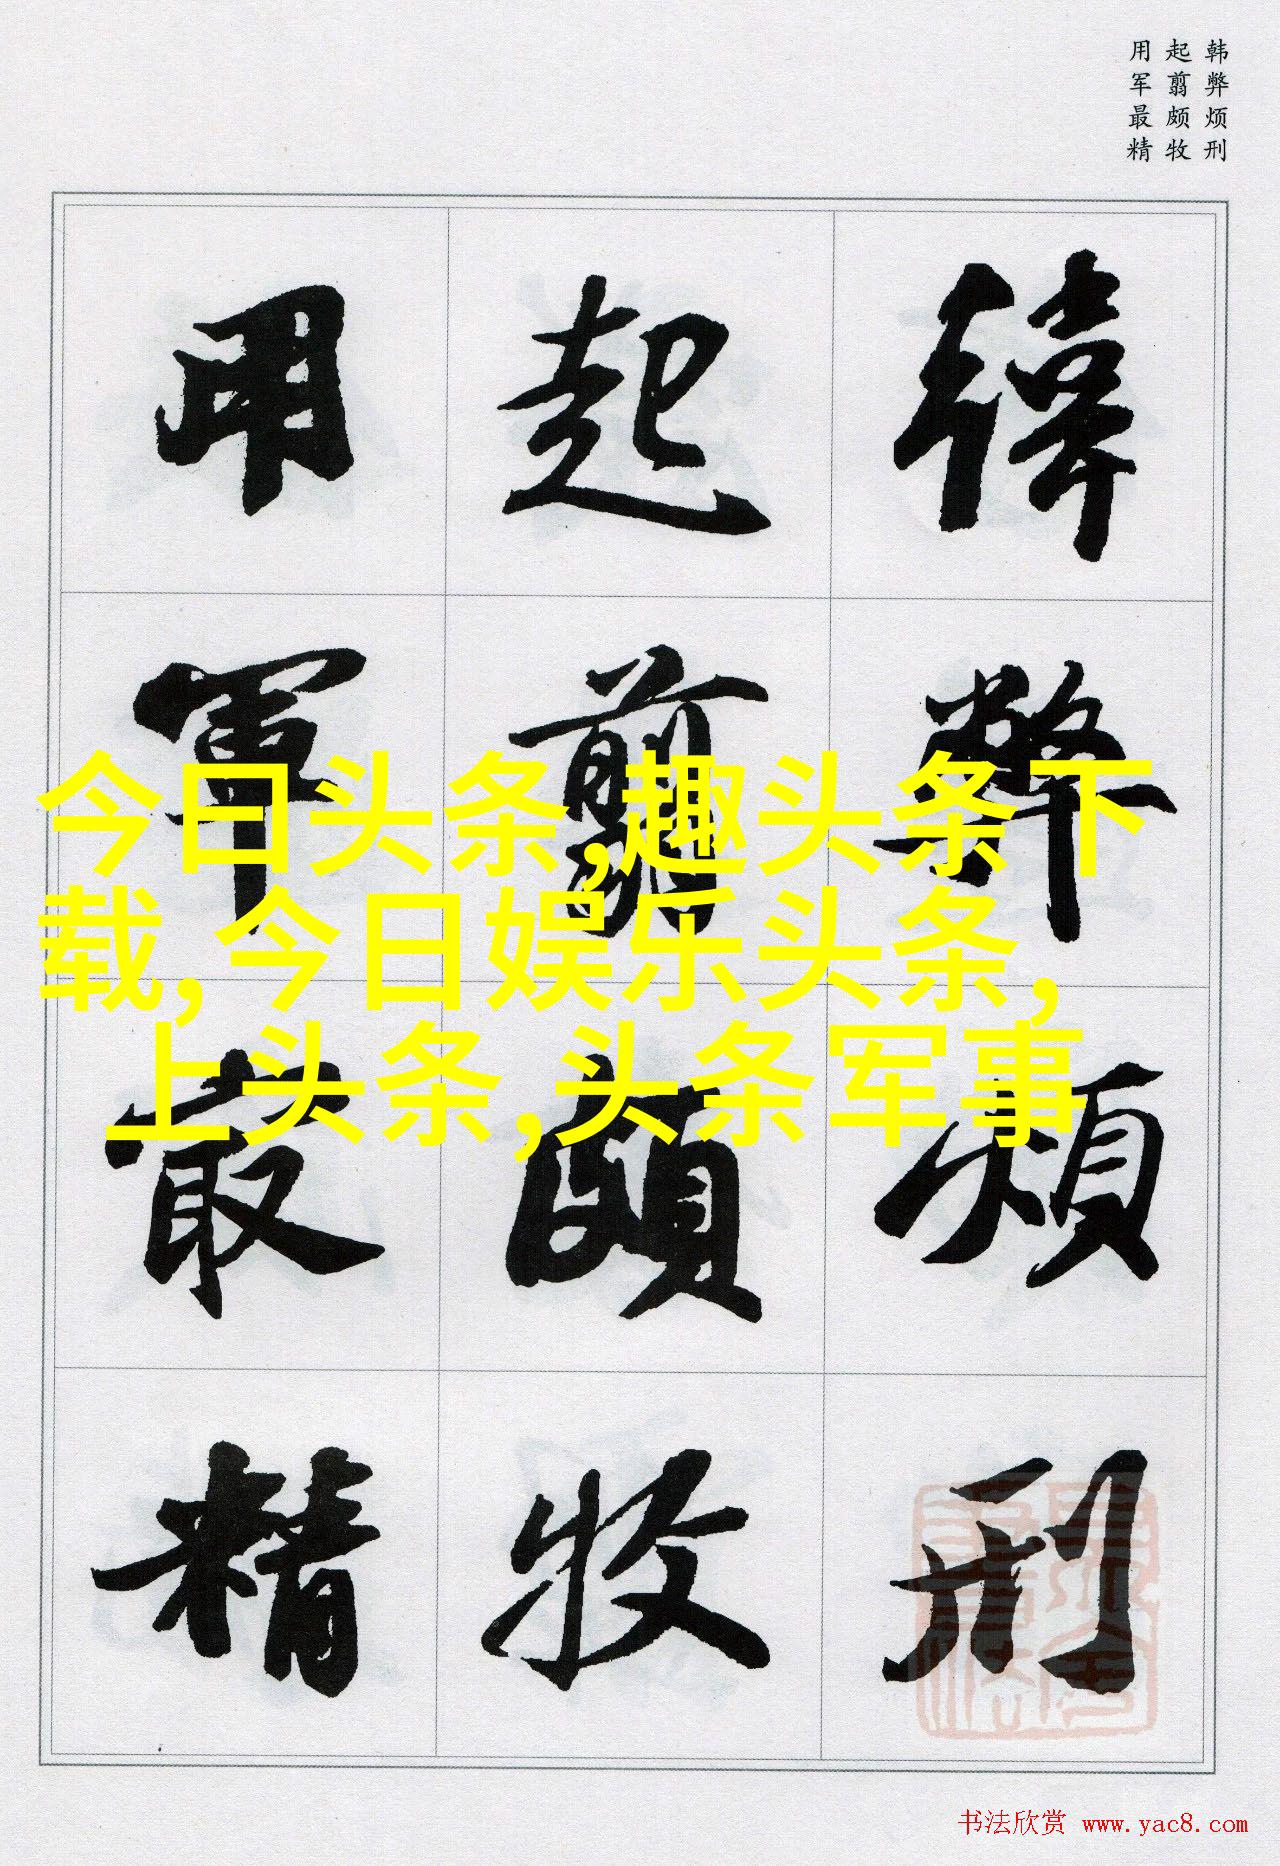 韩弊烦刑
起翦颇牧
用军最精
韓弊煩刑
起翦頗牧
用軍最精
今曰头条,趣头条下
载,今日娱乐头条,
上头条,头条军事
书法欣赏 www.yac8.com